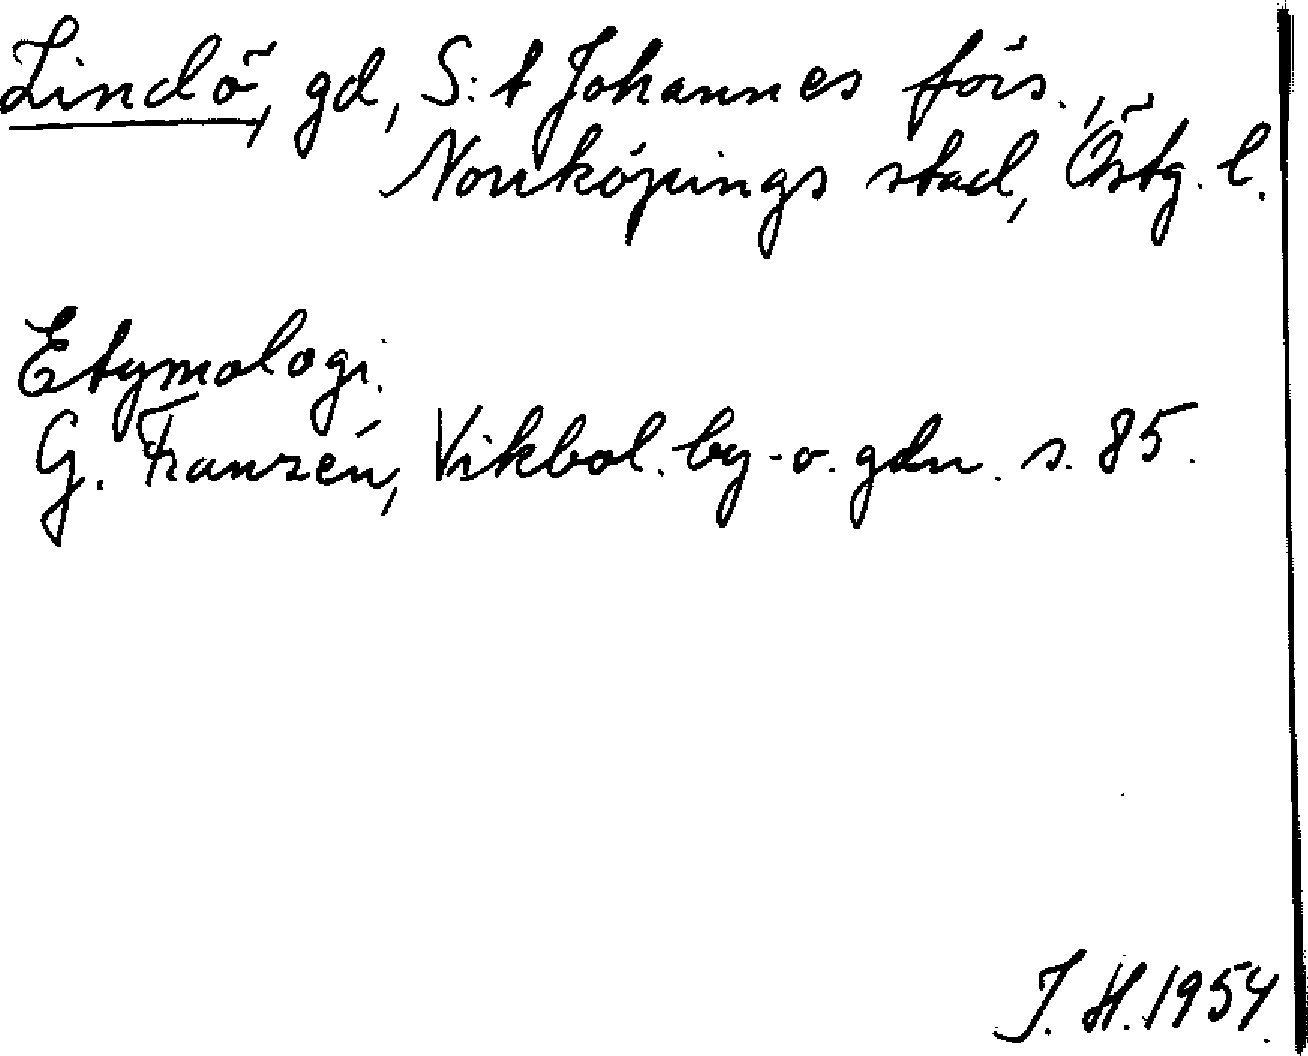 Lindö, gd, S:t Johannes förs.,
Norrköpings stad, Östg. l.
Etymologi.
G. Franzén, Vikbol. by- o. gdn. s. 85.
J. H. 1954.